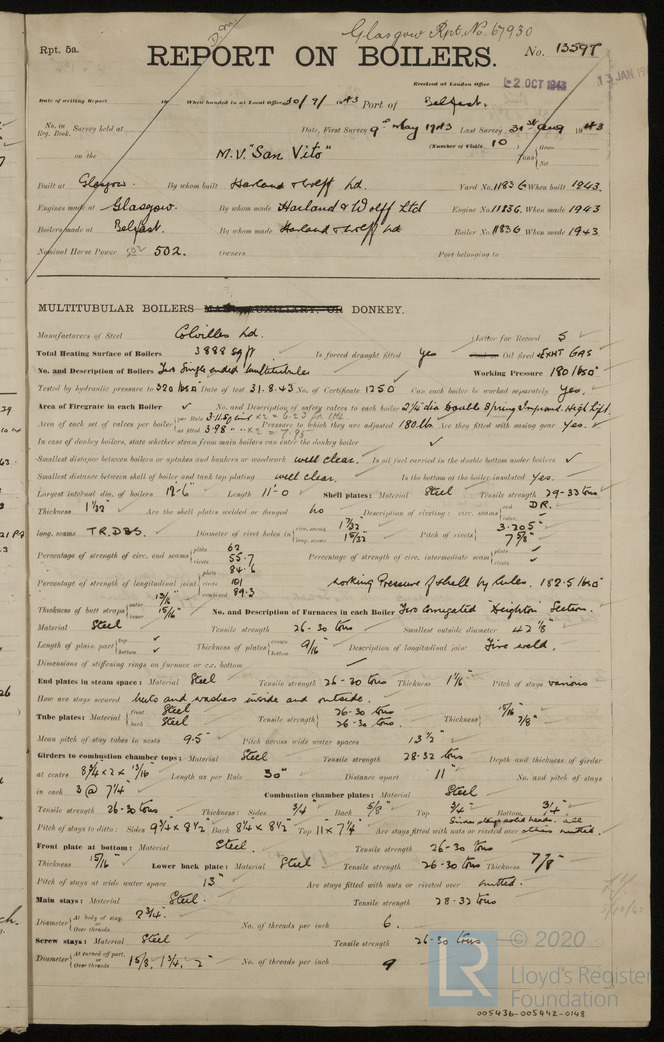 Glasgow Rpt. No. 67930
D.M.
Rpt. 5a.
REPORT ON BOILERS.
No. 13597
Received at London Office
-2 OCT 1943
13 JAN 19
Date of writing Report 19 When handed in at Local Office 30/9/1943 Port of Belfast.
No. in Reg. Book. Survey held at Date, First Survey 9th May 1943 Last Survey 31st Aug 1943
on the M.V. "San Vito" (Number of Visits 10) Tons { Gross Net
Built at Glasgow. By whom built Harland & Wolff Ld. Yard No. 1183G When built 1943.
Engines made at Glasgow. By whom made Harland & Wolff Ltd Engine No. 1183G. When made 1943
Boilers made at Belfast. By whom made Harland & Wolff Ld Boiler No. 1183G When made 1943
Nominal Horse Power 502 502. Owners Port belonging to
MULTITUBULAR BOILERS MAIN, AUXILIARY, OR DONKEY.
Manufacturers of Steel Colvilles Ld. (Letter for Record S
Total Heating Surface of Boilers 3888 sq ft Is forced draught fitted Yes Oil fired & EXHT GAS
No. and Description of Boilers Two Single ended Multitubular Working Pressure 180 lbs□"
Tested by hydraulic pressure to 320 lbs□" Date of test 31.8.43 No. of Certificate 1250 Can each boiler be worked separately Yes.
Area of Firegrate in each Boiler ✓ No. and Description of safety valves to each boiler 2½" dia Double Spring Improved High Lift.
Area of each set of valves per boiler { per Rule 3.115 as fitted 3.98 ×2 = 7.95 Pressure to which they are adjusted 180 lbs. Are they fitted with easing gear Yes.
In case of donkey boilers, state whether steam from main boilers can enter the donkey boiler ✓
Smallest distance between boilers or uptakes and bunkers or woodwork well clear. Is oil fuel carried in the double bottom under boilers ✓
Smallest distance between shell of boiler and tank top plating well clear. Is the bottom of the boiler insulated Yes.
Largest internal dia. of boilers 12'-6" Length 11'-0 Shell plates: Material Steel Tensile strength 29-33 tons
Thickness 1 1/32" Are the shell plates welded or flanged No Description of riveting: circ. seams { end DR. inter.
long. seams TR.DBS. Diameter of rivet holes in { circ. seams 1 7/32 long. seams 1 5/32 Pitch of rivets { 3.205" 7 5/8"
Percentage of strength of circ. end seams { plate 62 rivets 55.7 Percentage of strength of circ. intermediate seam { plate rivets
Percentage of strength of longitudinal joint { plate 84.6 rivets 101 combined 89.3 Working Pressure of shell by Rules. 182.5 lbs□"
Thickness of butt straps { outer 13/16" inner 15/16" No. and Description of Furnaces in each Boiler Two Corrugated "Deighton" Section.
Material Steel Tensile strength 26-30 tons Smallest outside diameter 42 1/8"
Length of plain part { top bottom Thickness of plates { crown bottom 9/16" Description of longitudinal joint Fire weld.
Dimensions of stiffening rings on furnace or c.c. bottom
End plates in steam space: Material Steel Tensile strength 26-30 tons Thickness 1 1/16" Pitch of stays various
How are stays secured Nuts and washers inside and outside.
Tube plates: Material { front Steel back Steel Tensile strength { 26-30 tons 26-30 tons. Thickness { 15/16" 7/8"
Mean pitch of stay tubes in nests 9.5" Pitch across wide water spaces 13½"
Girders to combustion chamber tops: Material Steel Tensile strength 28-32 tons Depth and thickness of girder
at centre 8¾ × 2 × 13/16 Length as per Rule 30" Distance apart 11" No. and pitch of stays
in each 3 @ 7¼" Combustion chamber plates: Material Steel
Tensile strength 26-30 tons Thickness: Sides 3/4" Back 5/8" Top 3/4" Bottom 3/4"
Pitch of stays to ditto: Sides 9¾ × 8½" Back 8¼ × 8½" Top 11 × 7¼" Are stays fitted with nuts or riveted over all others nutted.
Front plate at bottom: Material Steel. Tensile strength 26-30 tons
Thickness 15/16" Lower back plate: Material Steel Tensile strength 26-30 tons Thickness 7/8"
Pitch of stays at wide water space 13" Are stays fitted with nuts or riveted over nutted.
Main stays: Material Steel. Tensile strength 28-32 tons
Diameter { At body of stay, or Over threads 2¾". No. of threads per inch 6.
Screw stays: Material Steel Tensile strength 26-30 tons
Diameter { At turned off part, or Over threads 1 5/8, 1¾, 2" No. of threads per inch 9
© 2020
LR Lloyd's Register Foundation
005436-005442-0148